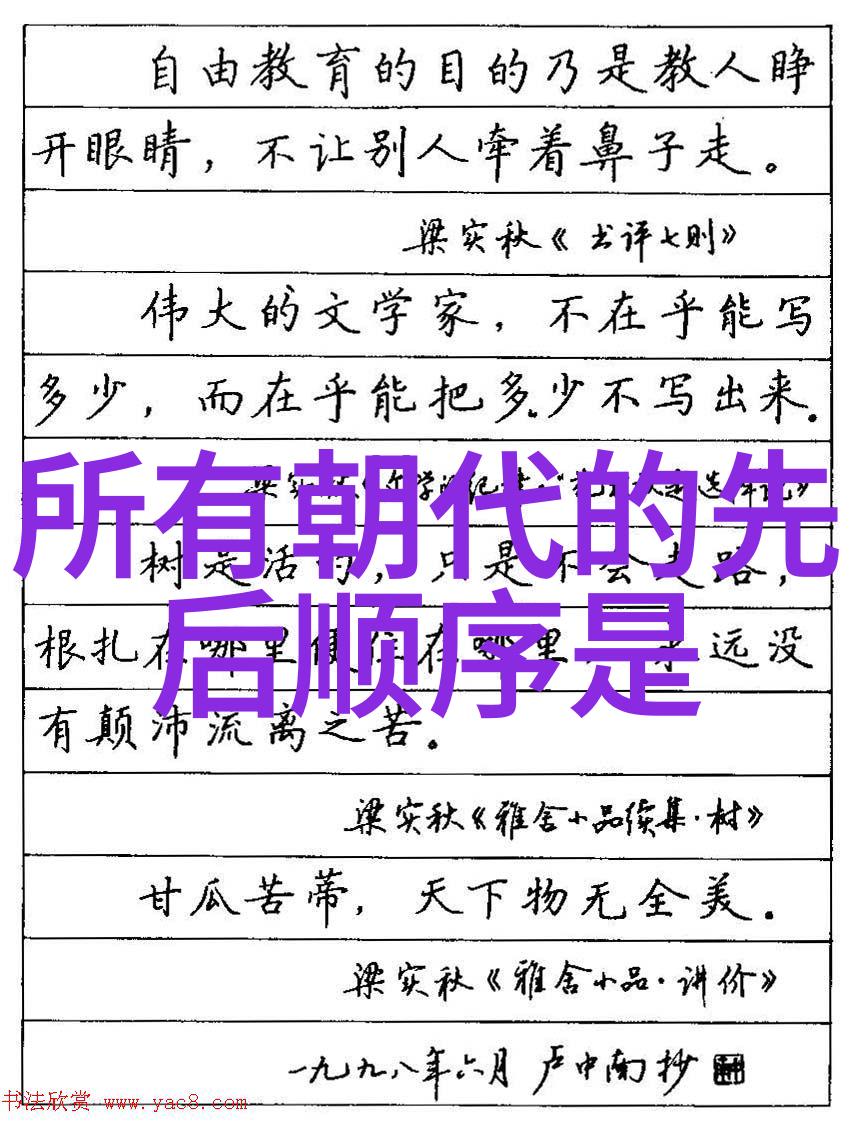 自由教育的目的乃是教人睁
开眼睛，不让别人牵着鼻子走。
梁实秋《书评七则》
伟大的文学家，不在乎能写
多少，而在乎能把多少不写出来。
所有朝代的先
后顺序是
树是活的，只是不会走路，
根扎在哪里便住在哪里，永远没
有颠沛流离之苦。
梁实秋《雅舍小品续集·树》
甘瓜苦蒂，天下物无全美。
梁实秋《雅舍小品·讲价》
一九九八年六月 卢中南抄
书法欣赏 www.yac8.com